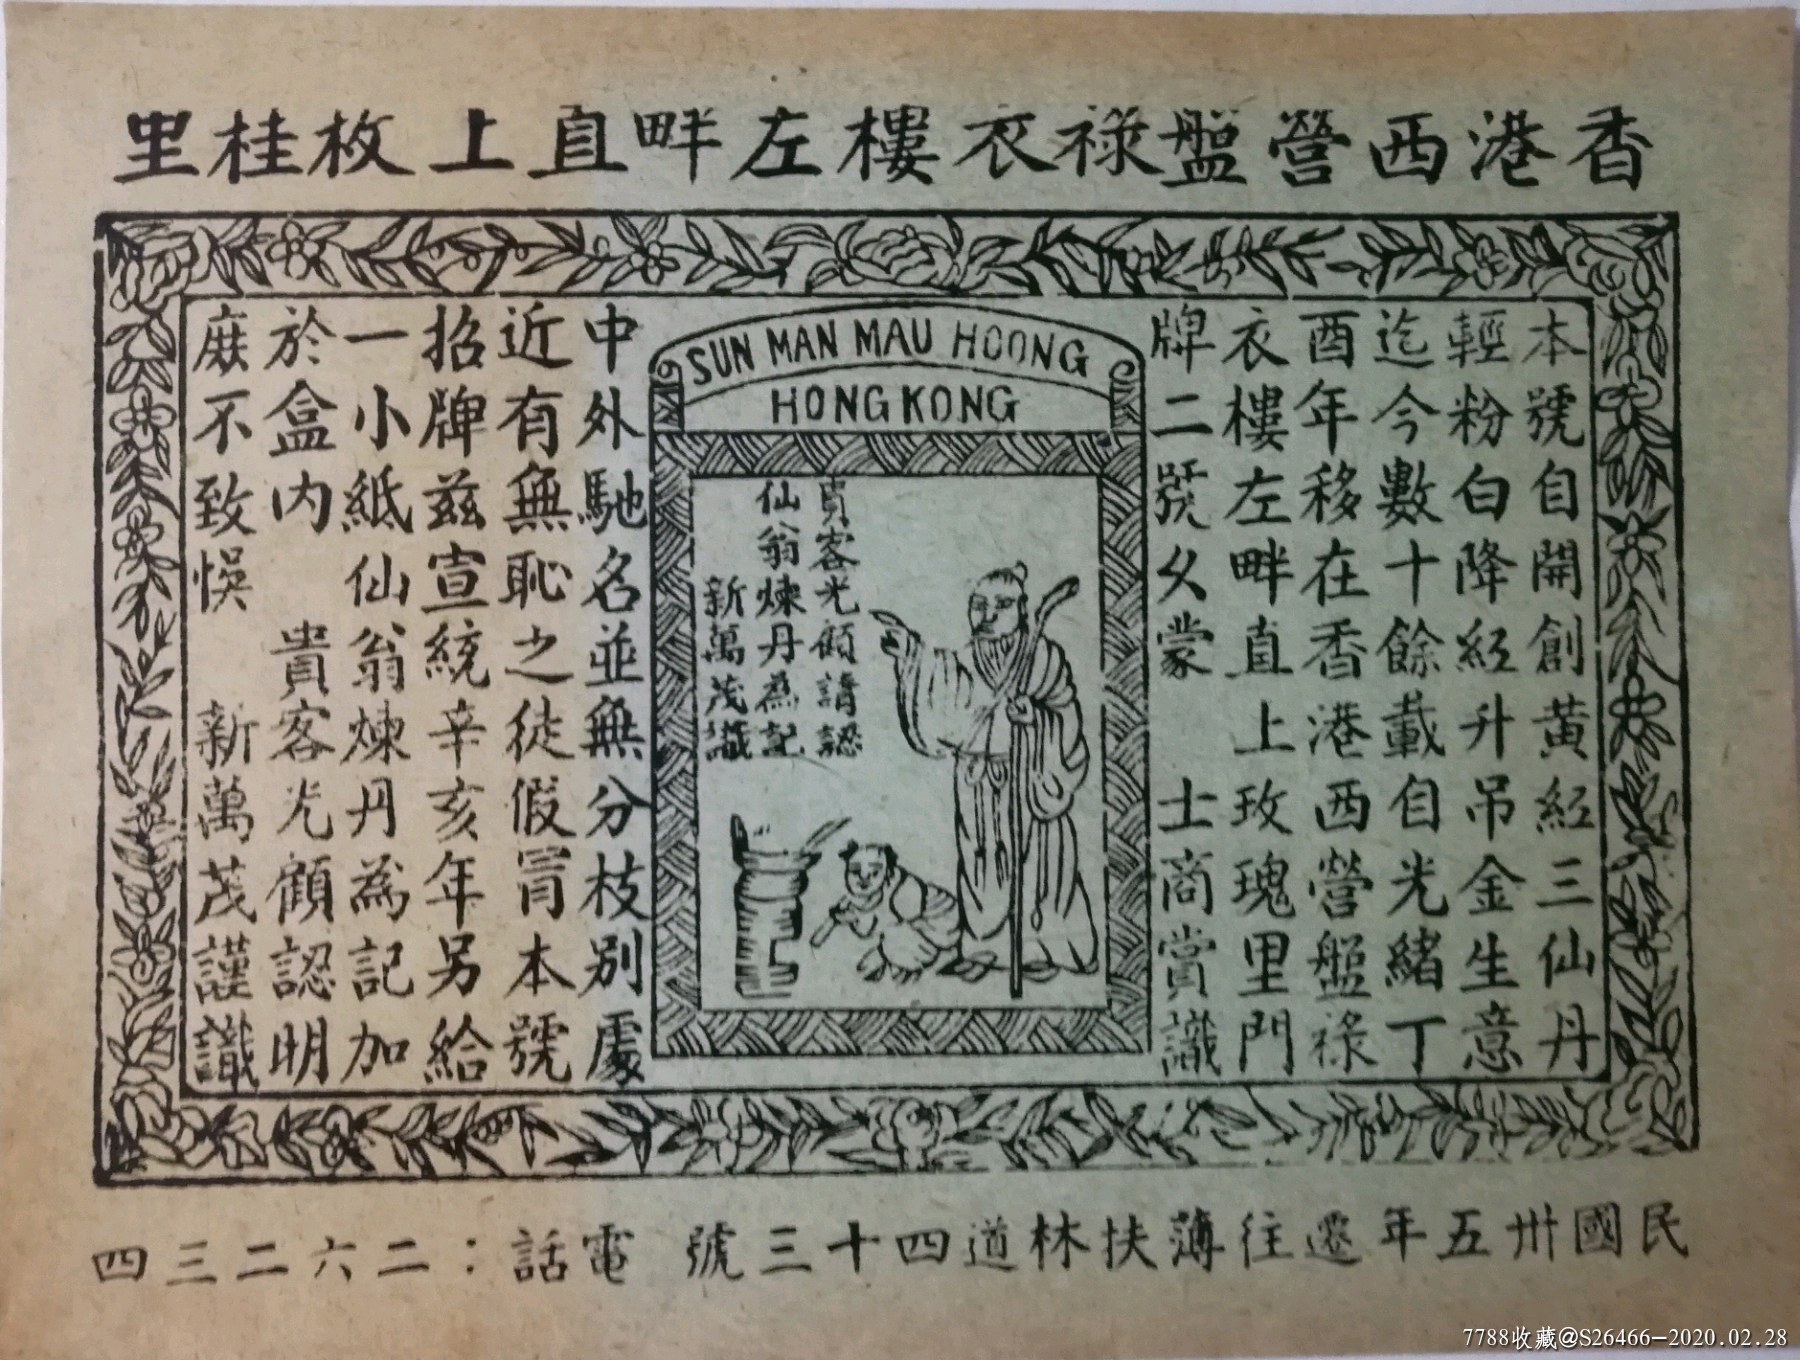 香港西營盤祿衣樓左畔直上枚桂里
本號自開創黃紅三仙丹
輕粉白降紅升吊金生意
迄今數十餘載自光緒丁
酉年移在香港西營盤祿
衣樓左畔直上玫瑰里門
牌二號久蒙 士商賞識
SUN MAN MAU HOONG
HONG KONG
貴客光顧請認
仙翁煉丹為記
新萬茂識
中外馳名並無分枝別處
近有無恥之徒假冒本號
招牌茲宣統辛亥年另給
一小紙仙翁煉丹為記加
於盒內 貴客光顧認明
庶不致悞 新萬茂謹識
民國卅五年遷往薄扶林道四十三號 電話：二六二三四
7788收藏@S26466-2020.02.28